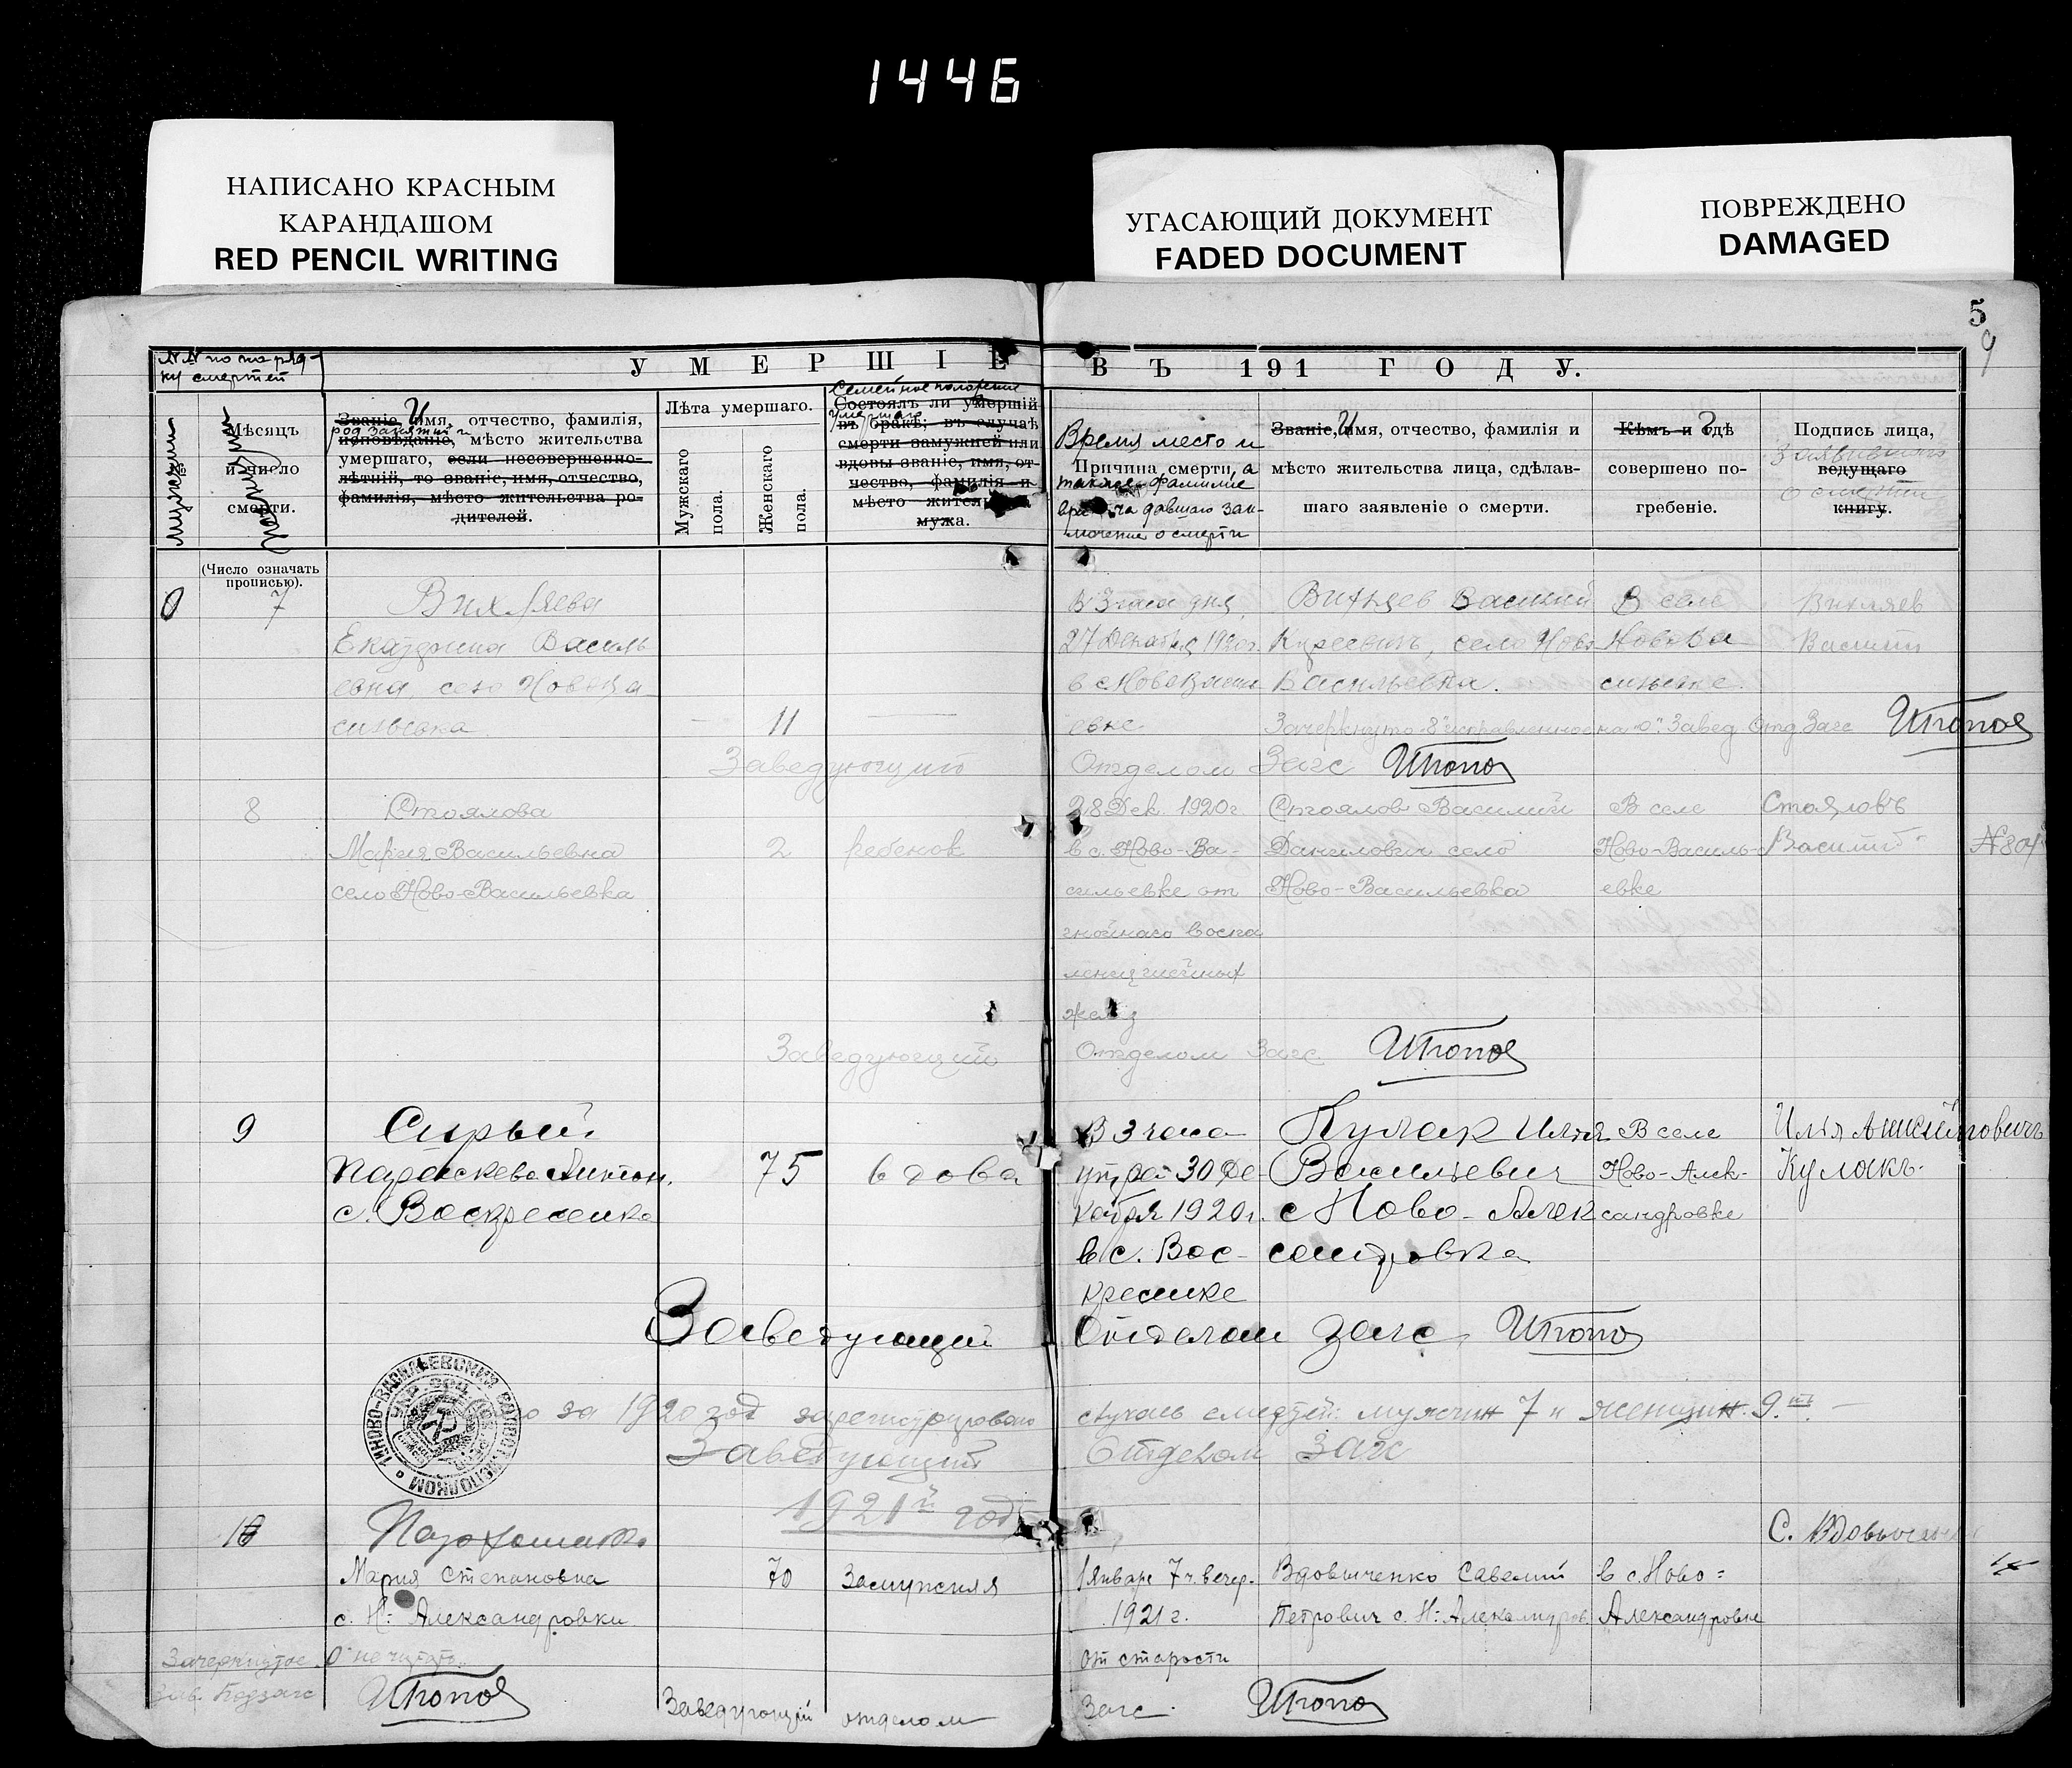 1446
НАПИСАНО КРАСНЫМ
КАРАНДАШОМ
RED PENCIL WRITING
УГАСАЮЩИЙ ДОКУМЕНТ
FADED DOCUMENT
ПОВРЕЖДЕНО
DAMAGED
5
9
NN по поряд-
ку смертей
УМЕРШІЕ
ВЪ 191 ГОДУ.
мужскии
женскии
Мѣсяцъ
и число
смерти.
(Число означать
прописью).
Званіе, И имя, отчество, фамилія,
род занятий
исповѣданіе, мѣсто жительства
умершаго, если несовершенно-
лѣтній, то званіе, имя, отчество,
фамилія, мѣсто жительства ро-
дителей.
Лѣта умершаго.
Мужскаго
пола.
Женскаго
пола.
Семейное положение
умершаго
Состоялъ ли умершій
въ бракѣ; въ случаѣ
смерти замужней или
вдовы званіе, имя, от-
чество, фамилія и
мѣсто жительства
мужа.
Время место и
Причина смерти, а
также фамилие
врача давшаго зак-
лючение о смерти
Званіе, И имя, отчество, фамилія и
мѣсто жительства лица, сдѣлав-
шаго заявленіе о смерти.
Кѣмъ и Гдѣ
совершено по-
гребеніе.
Подпись лица,
заявившаго
ведущаго
о смерти
книгу.
7
Вихляева
Екатерина Василь
евна, село Новова
сильевка
11
В 3 часа дня,
27 Декабря 1920г.
в с Ново Василь
евке
Вихляев Василий
село Ново
Васильевка.
В селе
Новова
сильевке.
Вихляев
Василий
Зачеркнуто "8" исправленное на "0". Завед Отд Загс
Заведующий
Отделом Загс
8
Стоялова
Мария Васильевна
село Ново-Васильевка
2
ребенок
28 Дек. 1920г
в с. Ново-Ва-
сильевке от
гнойнаго воспа
ления шейных
желез
Стоялов Василий
Данилович село
Ново-Васильевка
В селе
Ново-Василь-
евке
Стояловъ
Василий
Заведующий
Отделом Загс
9
Сирый
Параскева Антон.
с. Воскресенка
75
вдова
В 3 часа
утра 30 Де
кабря 1920г.
в с. Вос-
кресенке
Кулак Илья
Васильевич
с Ново-Алек
сандровка
В селе
Ново-Алек-
сандровке
Илья
Кулакъ.
Заведующий
Отделом Загс
за 1920 год зарегистрировано
случаев смертей: мужчин 7 и женщин 9.
Заведующий
Отделом Загс
1921й год
10
Пархоменко
Мария Степановна
с. Н: Александровки
70
Замужняя
1 Января 7 ч. вечер.
1921 г.
от старости
Вдовиченко Савелий
Петрович с. Н: Александров
в с. Ново=
Александровке
С. Вдовиченко
Зачеркнутое "0" не читать.
Заведующий отделом
Загс